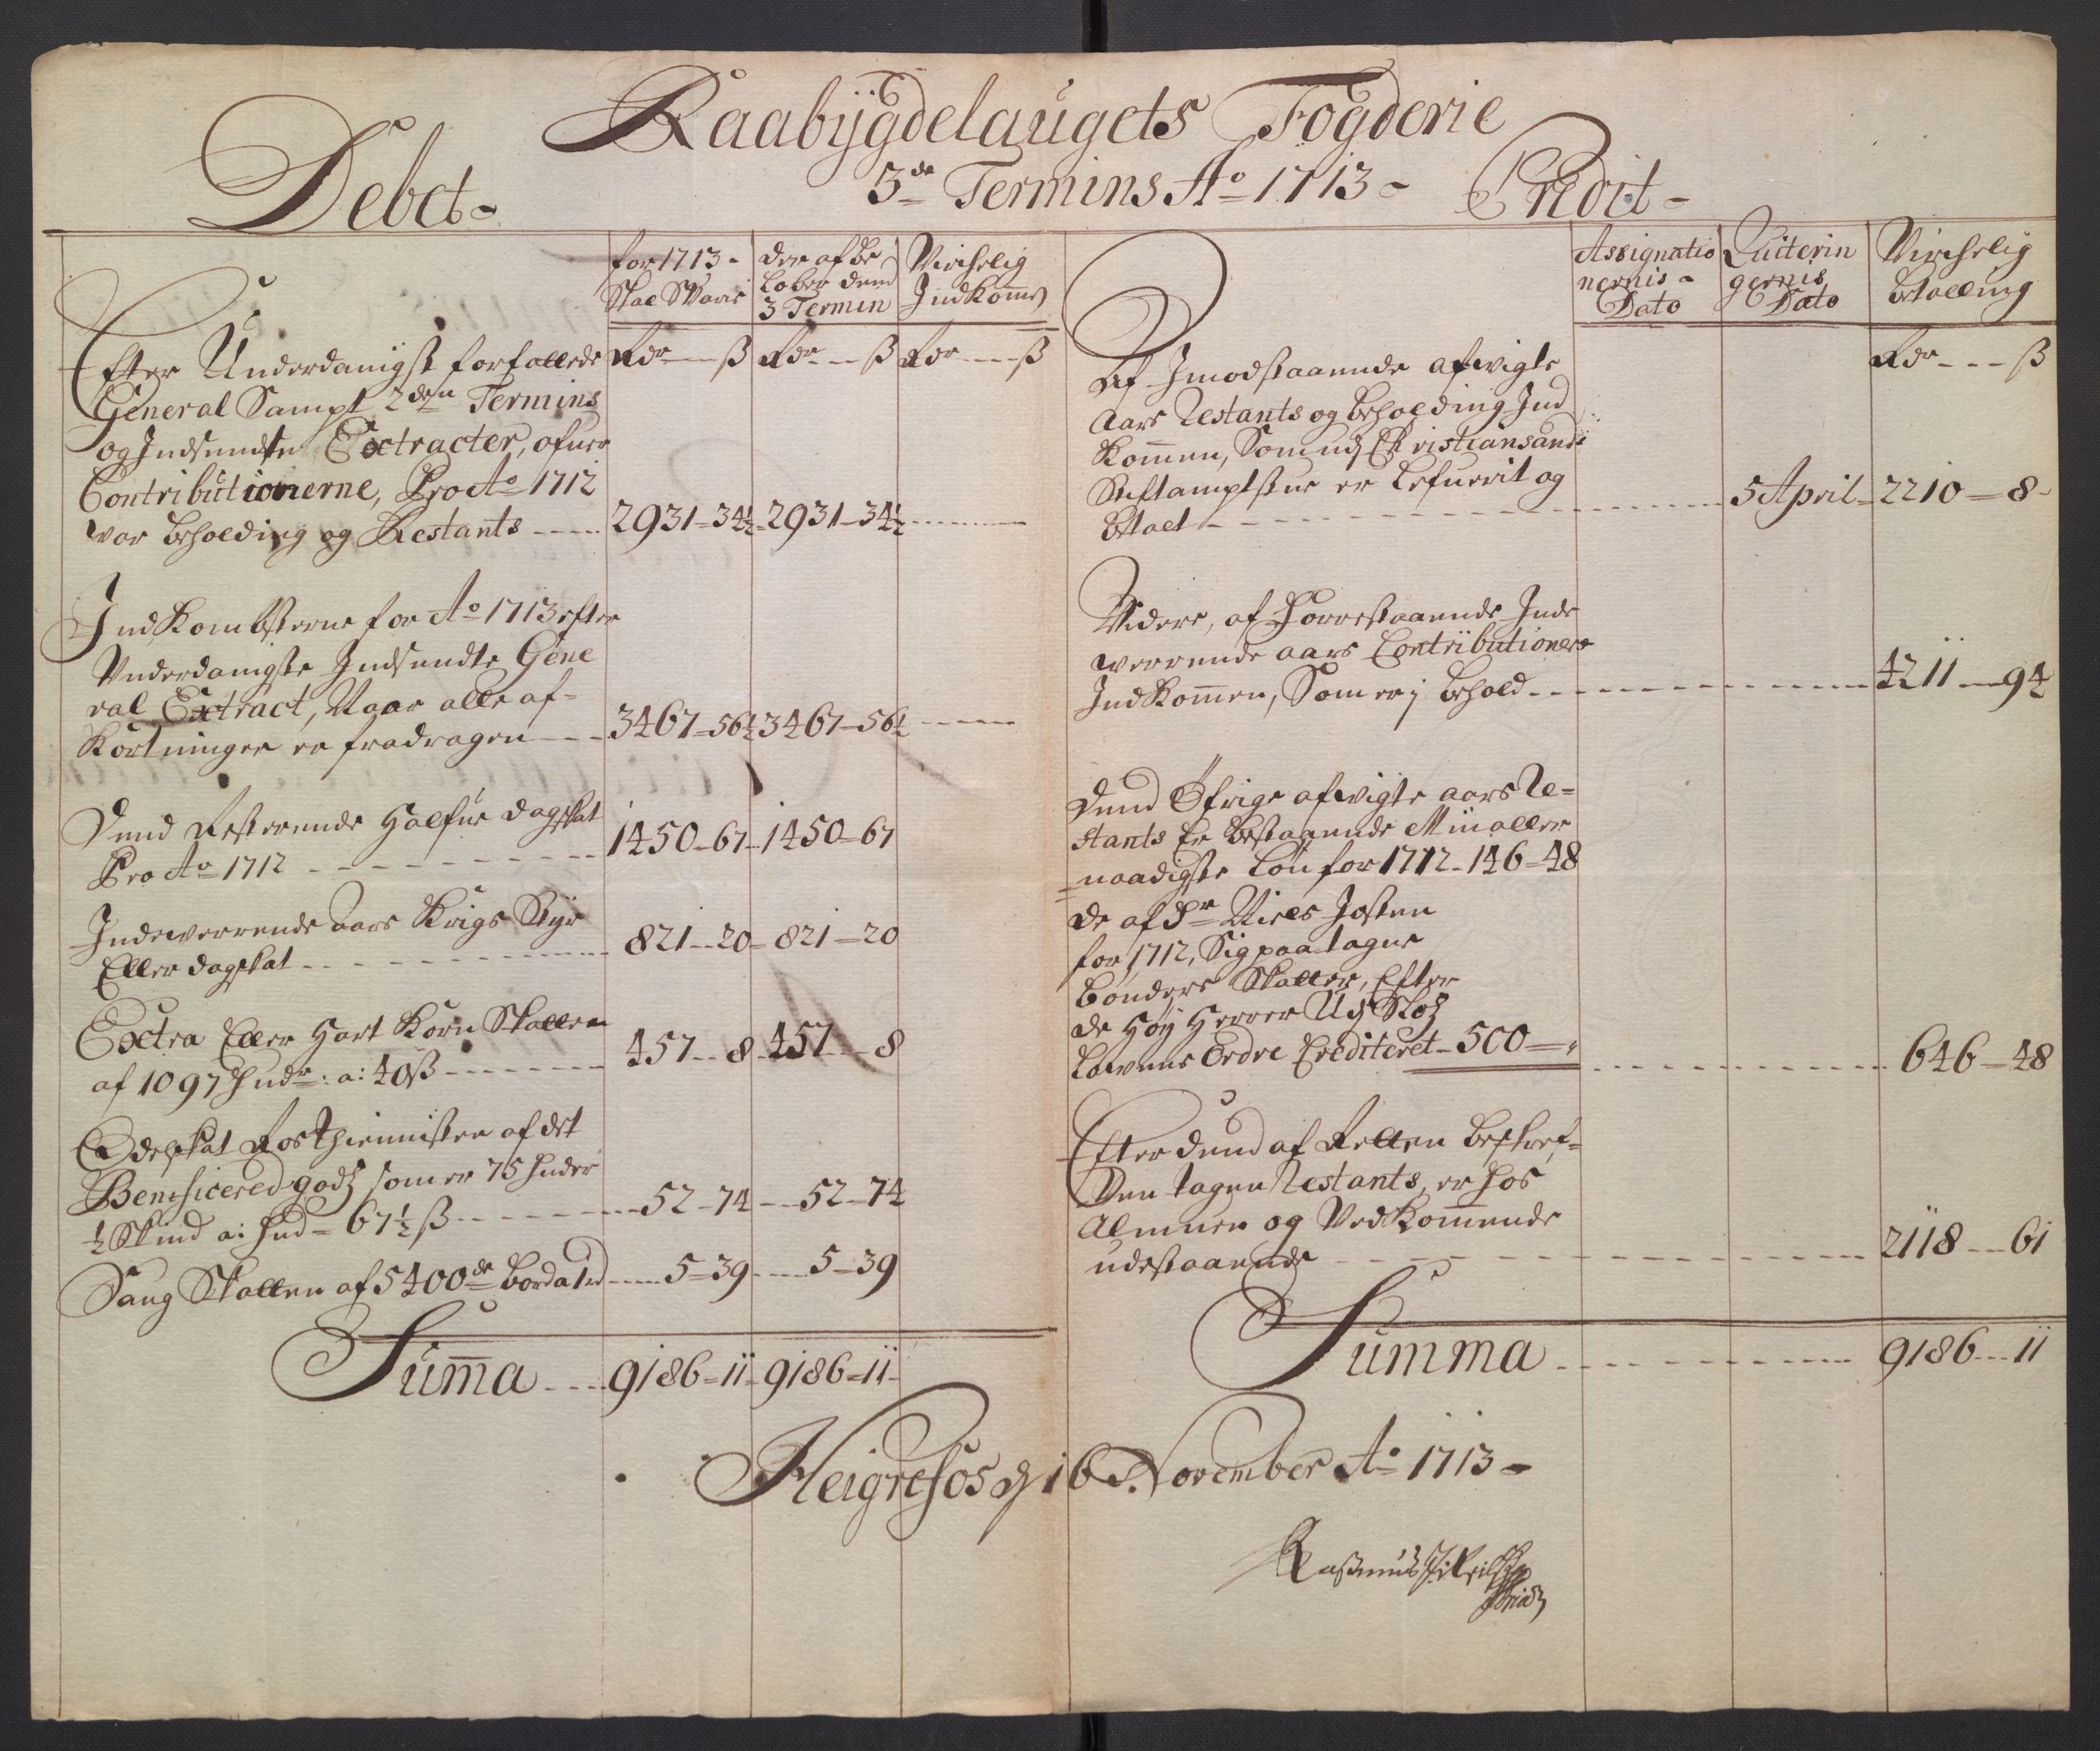 Raabÿgdelaugets Fogderie
3de Termins Ao 1713
Debet
Credit
for 1713
Skal Svaris
Der af be
løber dend
3 Termin
Virchelig
IndKomme
Rdr ß Rdr ß Rdr ß
Efter Underdanigst forfallede
General Sampt 2den Termins
og Indsendte Extracter, ofuer
Contributionerne, Pro Ao 1712
var beholding og Restants 2931 34½ 2931 34½
IndKombsterne for Ao 1713 efter
Underdanigste Indsendte Gene
ral Extract, Naar alle af=
Kortninger er fradragen 3467 56½ 3467 56½
Dend Resterende Halfue dagskat
Pro Ao 1712 1450 67 1450 67
Indeverrende aars Krigs Styr
Eller dagskat 821 20 821 20
Extra Eller Hart Korn Skatten
af 1097 Hudr: a: 40ß 457 8 457 8
Odelskat Rosthienisten af det
Beneficered godz som er 75 Huder
½ Skind a: Hud = 67½ ß 52 74 52 74
Saug Skatten af 5400de bord a 1rd 5 39 5 39
Suma 9186 11 9186 11
Assignatio
nernis
Dato
Quiterin
gernis
Dato
Virchelig
betalling
Rdr ß
Af Imodstaaende afvigte
Aars Restants og beholding Ind
Kommen, Som udj Christiansands
Stiftamptstue er Lefuerit og
betalt 5 April 2210 8
Videre, af Forrestaaende Inde
verrende aars Contributioner
IndKommen, Som er j behold 4211 94
Dend Øfrige afvigte aars Re=
stants Er bestaaende Min aller
naadigste Løn for 1712 146 48
De af Sr Niels Josten
for 1712, Sig paatagne
bønders Skatter, Efter
de Høy Herrer Udj Slotz
Lovens Ordre Crediteret 500
646 48
Efter dend af Retten beskref=
ven tagen Restants, er hos
Almuen og VedKommende
udestaaende 2118 61
Summa 9186 11
Heigrefos d 16 November Ao 1713
Rasmus